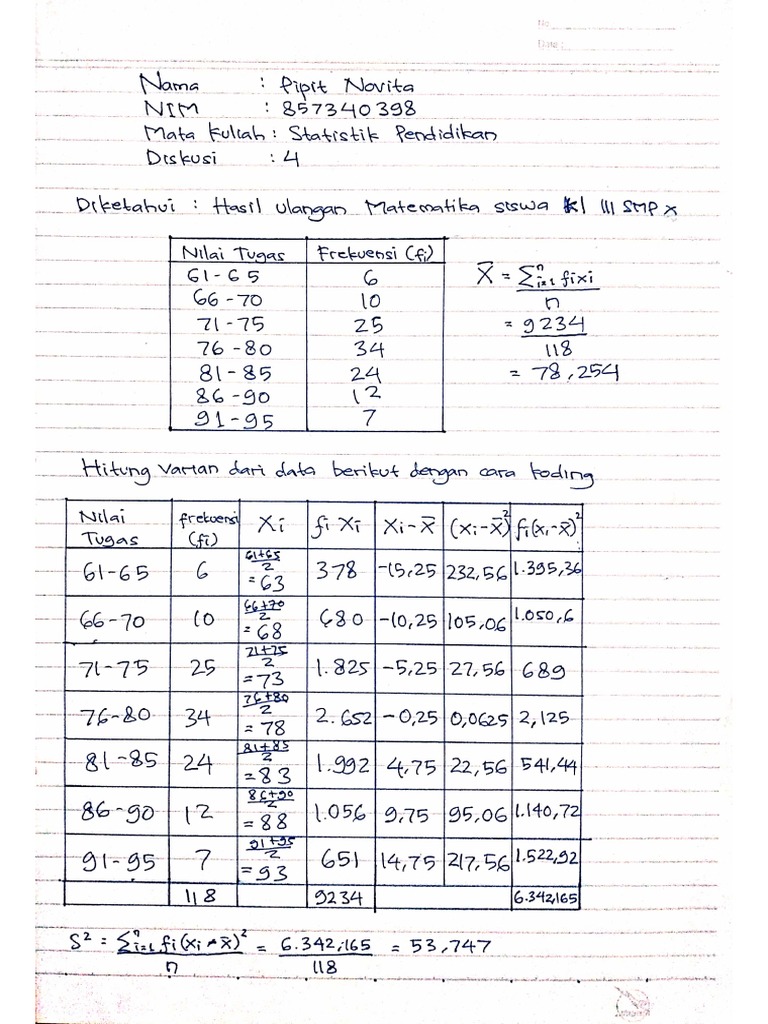 No
Date :
Nama : Pipit Novita
NIM : 857340398
Mata Kuliah : Statistik Pendidikan
Diskusi : 4
Diketahui : Hasil ulangan Matematika siswa kl III SMP X
Nilai Tugas Frekuensi (fi)
61-65 6
66-70 10
71-75 25
76-80 34
81-85 24
86-90 12
91-95 7
X̄ = ∑ⁿᵢ₌₁ fixi / n
= 9234 / 118
= 78,254
Hitung varian dari data berikut dengan cara koding
Nilai Tugas frekuensi (fi) Xi fi Xi Xi-X̄ (Xi-X̄)² fi(xi-x̄)²
61-65 6 61+65/2 = 63 378 -15,25 232,56 1.395,36
66-70 10 66+70/2 = 68 680 -10,25 105,06 1.050,6
71-75 25 71+75/2 = 73 1.825 -5,25 27,56 689
76-80 34 76+80/2 = 78 2.652 -0,25 0,0625 2,125
81-85 24 81+85/2 = 83 1.992 4,75 22,56 541,44
86-90 12 86+90/2 = 88 1.056 9,75 95,06 1.140,72
91-95 7 91+95/2 = 93 651 14,75 217,56 1.522,92
118 9234 6.342,165
S² = ∑ⁿᵢ₌₁ fi(xi-x̄)² / n = 6.342,165 / 118 = 53,747